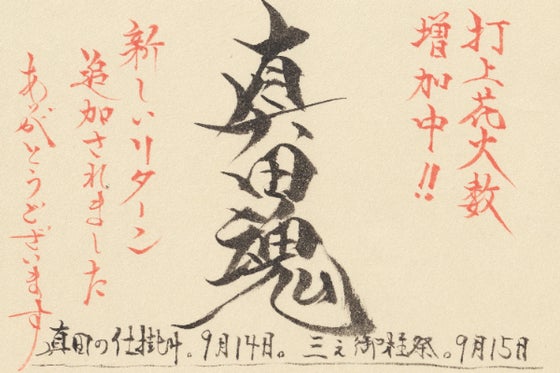 打上花火数
増加中!!
真田魂
新しいリターン
追加されました
ありがとうございます
真田の仕掛け。9月14日。三え御柱祭。9月15日